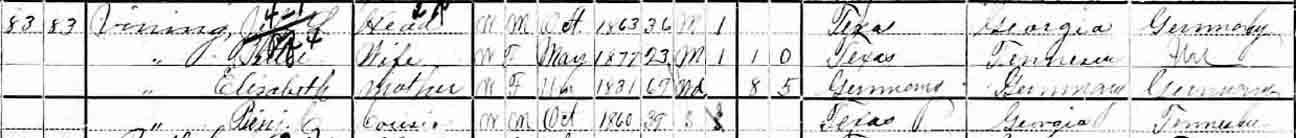 83 83 Vining, Head W M Oct 1863 36 M 1 Texa Georgia Germany
" Wife W F May 1877 23 M 1 1 0 Texas Tennesee
" Elizabeth Mother W F 1831 Wd 8 5 Germany Germany Germany
" Cousin W M Oct 1860 39 S Texas Georgia Tennessee